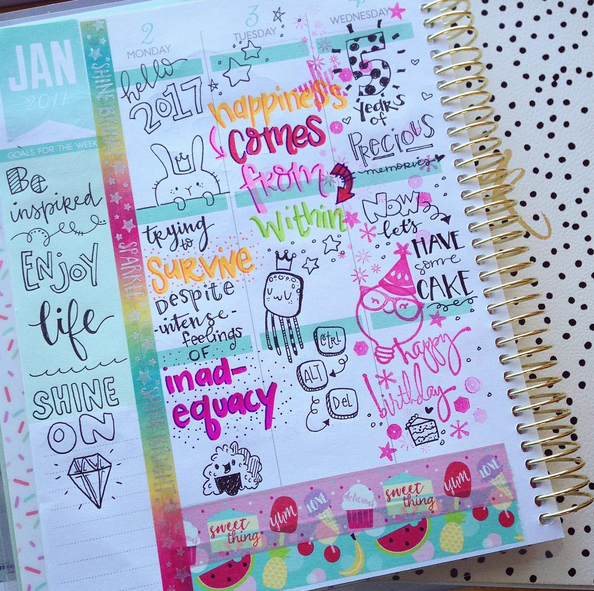 JAN
2017
GOALS FOR THE WEEK
Be
inspired
ENJOY
life
SHINE
ON
SPARKLE
2
MONDAY
hello
2017
trying
to
SURVIVE
DESPITE
intense
feelings
OF
inad-
equacy
3
TUESDAY
happiness
comes
from
within
Ctrl
ALT
Del
4
WEDNESDAY
5
years
of
PRECIOUS
memories
Now
let's
HAVE
some
CAKE
happy
birthday
sweet
thing
YUM
LOVE
delicious
sweet
thing
YUM
LOVE